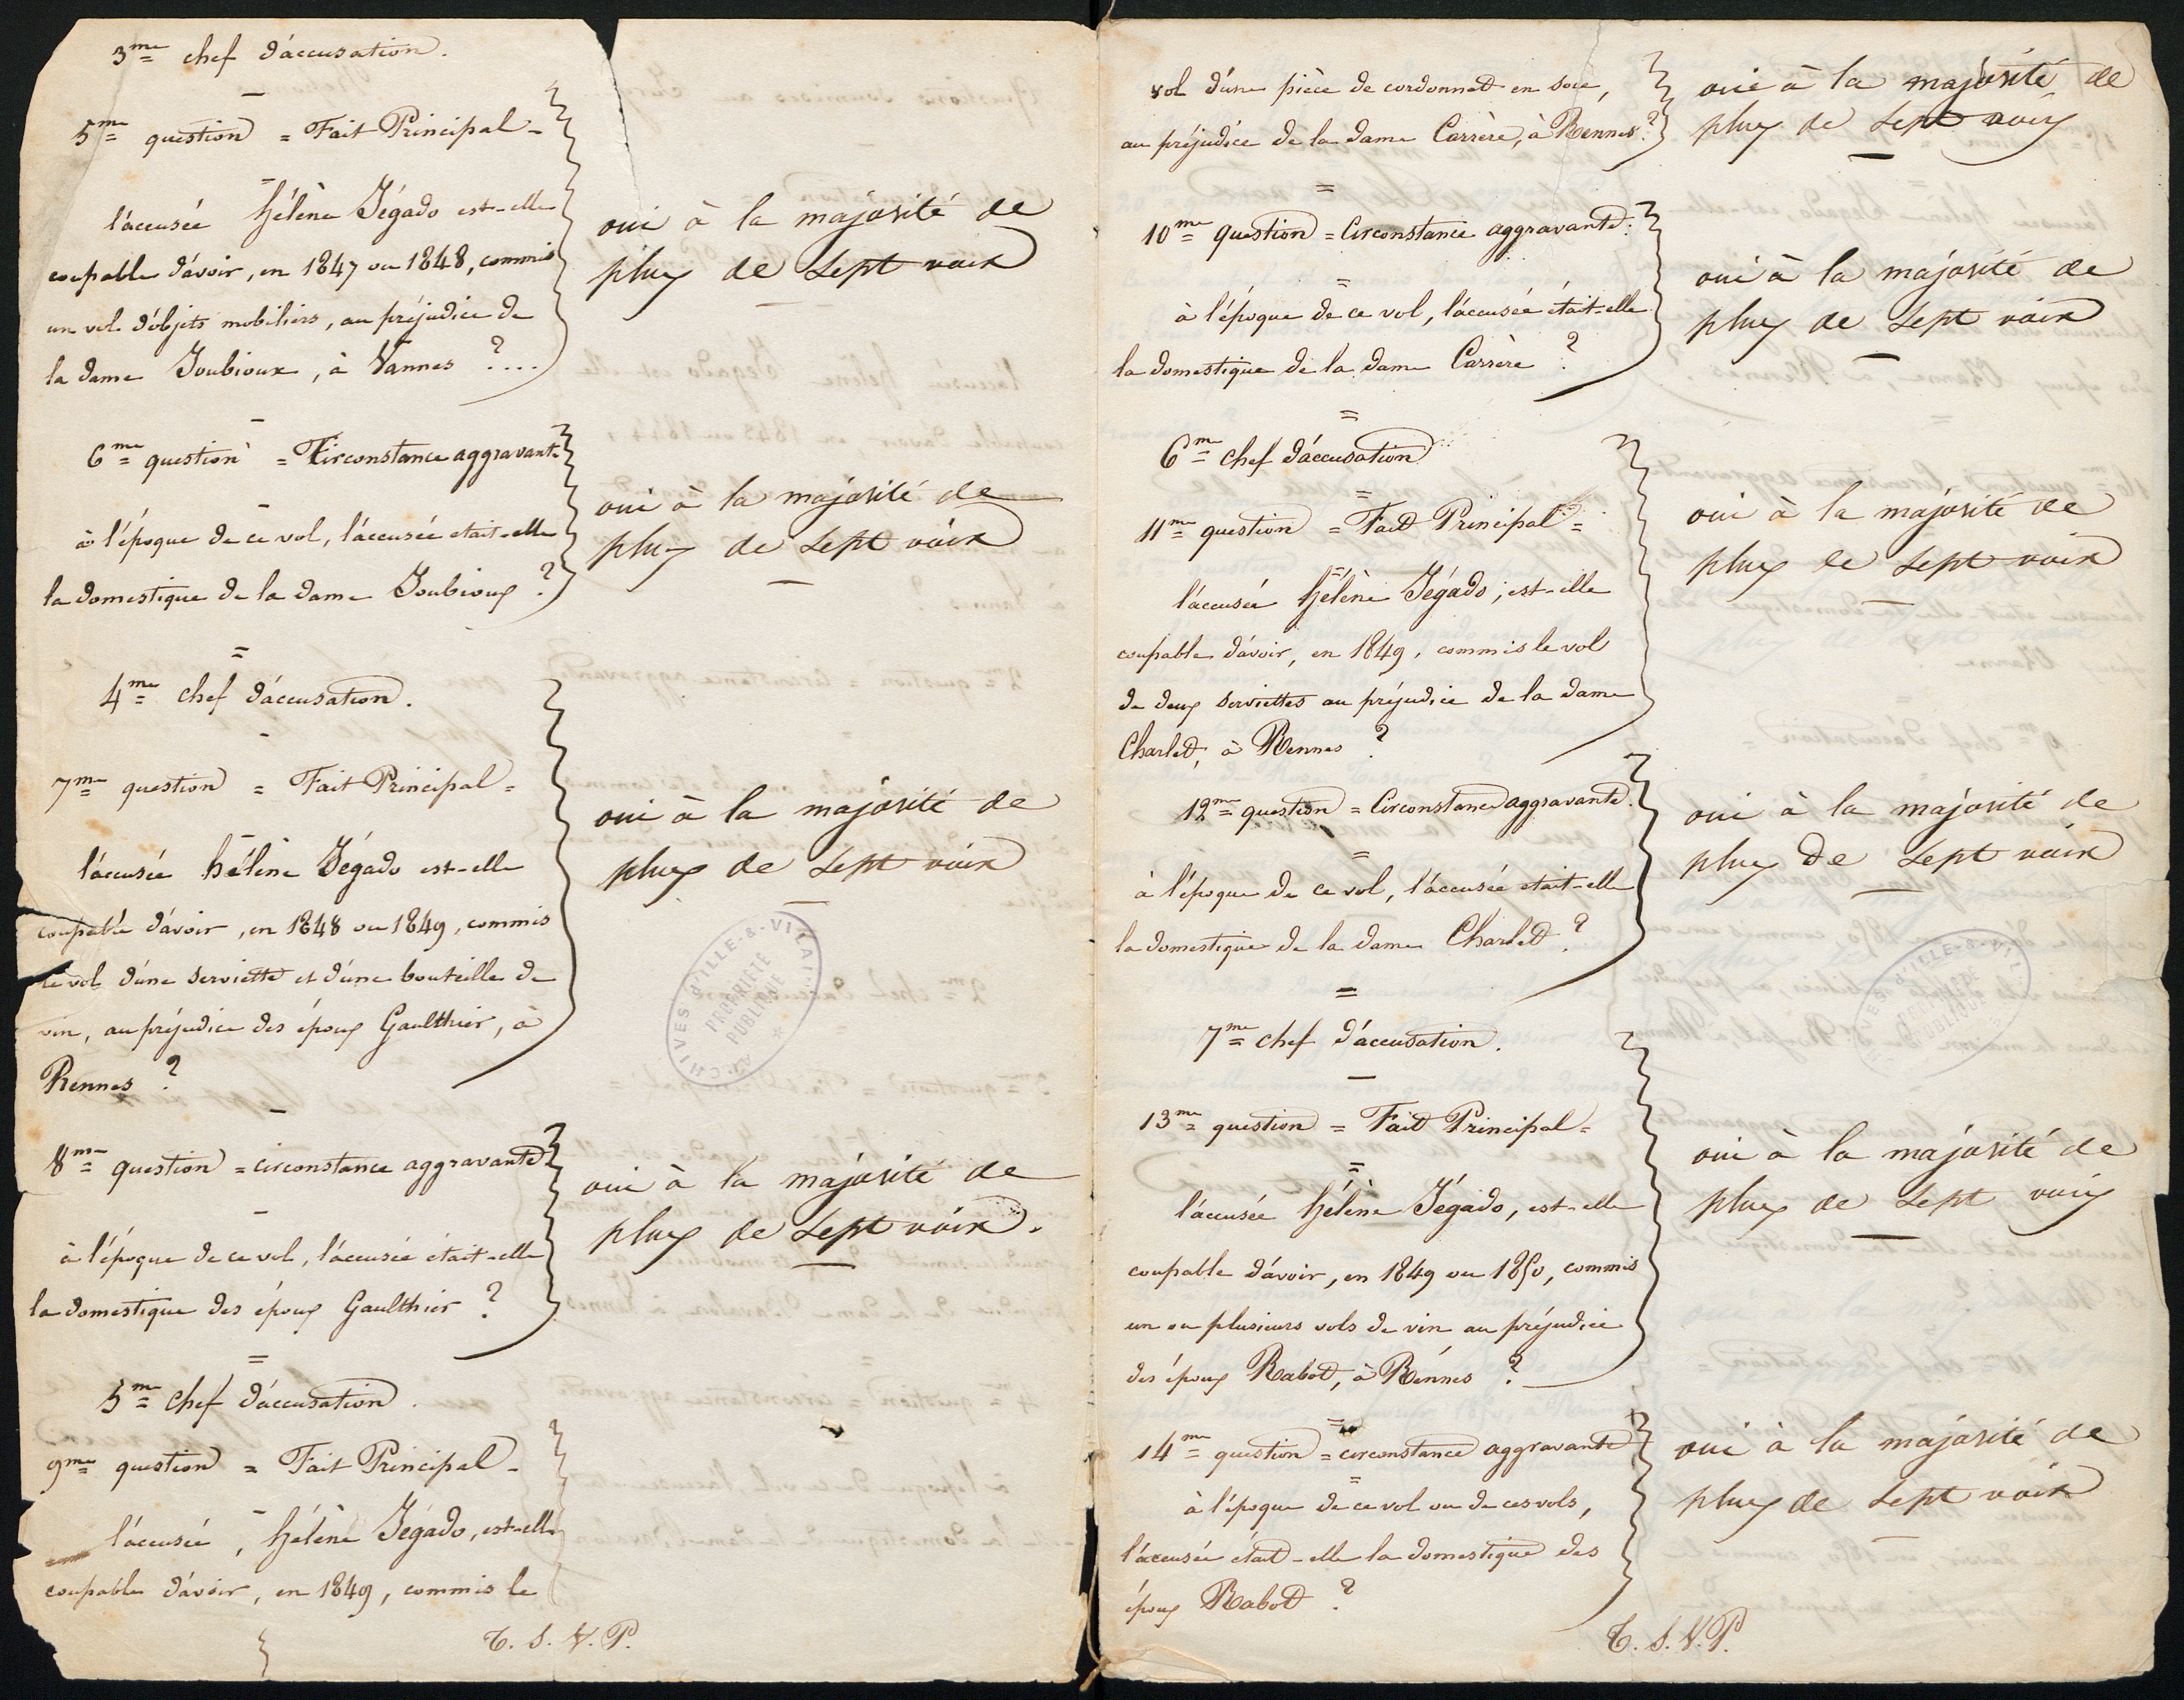 3me chef d'accusation.
5me question = Fait Principal -
l'accusée hélène Jégado est-elle
coupable d'avoir, en 1847 ou 1848, commis
un vol d'objets mobiliers, au préjudice de
la dame Joubioux, à Vannes ?...
oui à la majorité de
plus de sept voix
6me question = Circonstance aggravante
à l'époque de ce vol, l'accusée etait-elle
la domestique de la dame Joubioux ?
oui à la majorité de
plus de sept voix
4me chef d'accusation.
7me question = Fait Principal =
l'accusée hélène Jégado est-elle
coupable d'avoir, en 1848 ou 1849, commis
le vol d'une serviette et d'une bouteille de
vin, au préjudice des époux Gaulthier, à
Rennes ?
oui à la majorité de
plus de sept voix
ARCHIVES D'ILLE-&-VILAINE
PROPRIETE
PUBLIQUE
8me question = circonstance aggravante
à l'époque de ce vol, l'accusée était-elle
la domestique des époux Gaulthier ?
oui à la majorité de
plus de sept voix.
5me chef d'accusation.
9me question = Fait Principal -
l'accusée, hélène Jégado, est-elle
coupable d'avoir, en 1849, commis le
T. S. V. P.
vol d'une pièce de cordonnet en soie,
au préjudice de la dame Carrère, à Rennes ?
oui à la majorité de
plus de sept voix
10me question = Circonstance aggravante.
à l'époque de ce vol, l'accusée était-elle
la domestique de la dame Carrère ?
oui à la majorité de
plus de sept voix
6me chef d'accusation
11me question = Fait Principal =
l'accusée hélène Jégado, est-elle
coupable d'avoir, en 1849, commis le vol
de deux serviettes au préjudice de la dame
Charlet, à Rennes ?
oui à la majorité de
plus de sept voix
12me question = Circonstance aggravante.
à l'époque de ce vol, l'accusée etait-elle
la domestique de la dame Charlet ?
oui à la majorité de
plus de sept voix
ARCHIVES D'ILLE-&-VILAINE
PROPRIETE
PUBLIQUE
7me chef d'accusation.
13me question = Fait Principal =
l'accusée hélène Jégado, est-elle
coupable d'avoir, en 1849 ou 1850, commis
un ou plusieurs vols de vin au préjudice
des époux Rabot, à Rennes ?
oui à la majorité de
plus de sept voix
14me question = circonstance aggravante
à l'époque de ce vol ou de ces vols,
l'accusée était-elle la domestique des
époux Rabot ?
oui à la majorité de
plus de sept voix
T. S. V. P.